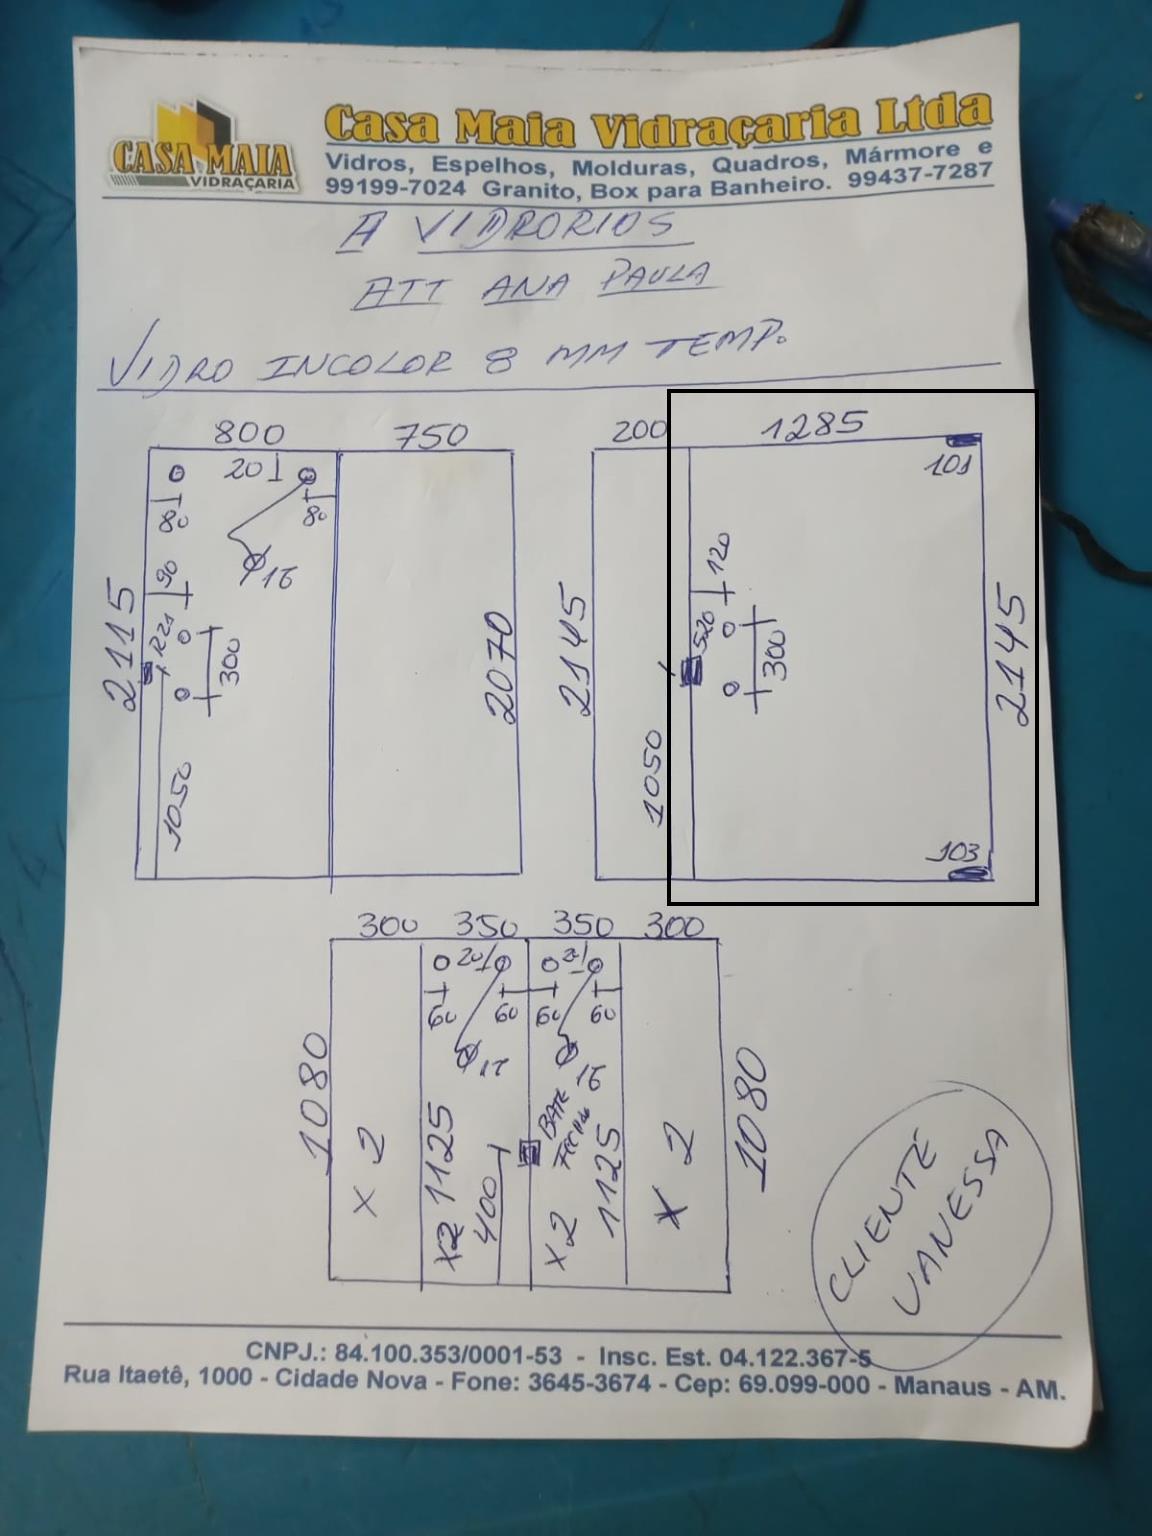 CASA MAIA
VIDRAÇARIA
Casa Maia Vidraçaria Ltda
Vidros, Espelhos, Molduras, Quadros, Mármore e
99199-7024 Granito, Box para Banheiro. 99437-7287
A VIDRORIOS
ATT ANA PAULA
VIDRO INCOLOR 8 MM TEMP.
800 750
20
80 80
16
90
1221
300
2115
2070
1050
200 1285
101
120
520
300
2145
2145
1050
103
300 350 350 300
20
60 60 60 60
16
1080
1080
X 2
X2 1125
400
BATE
X 2 1125
X 2
CLIENTE
VANESSA
CNPJ.: 84.100.353/0001-53 - Insc. Est. 04.122.367-5
Rua Itaetê, 1000 - Cidade Nova - Fone: 3645-3674 - Cep: 69.099-000 - Manaus - AM.